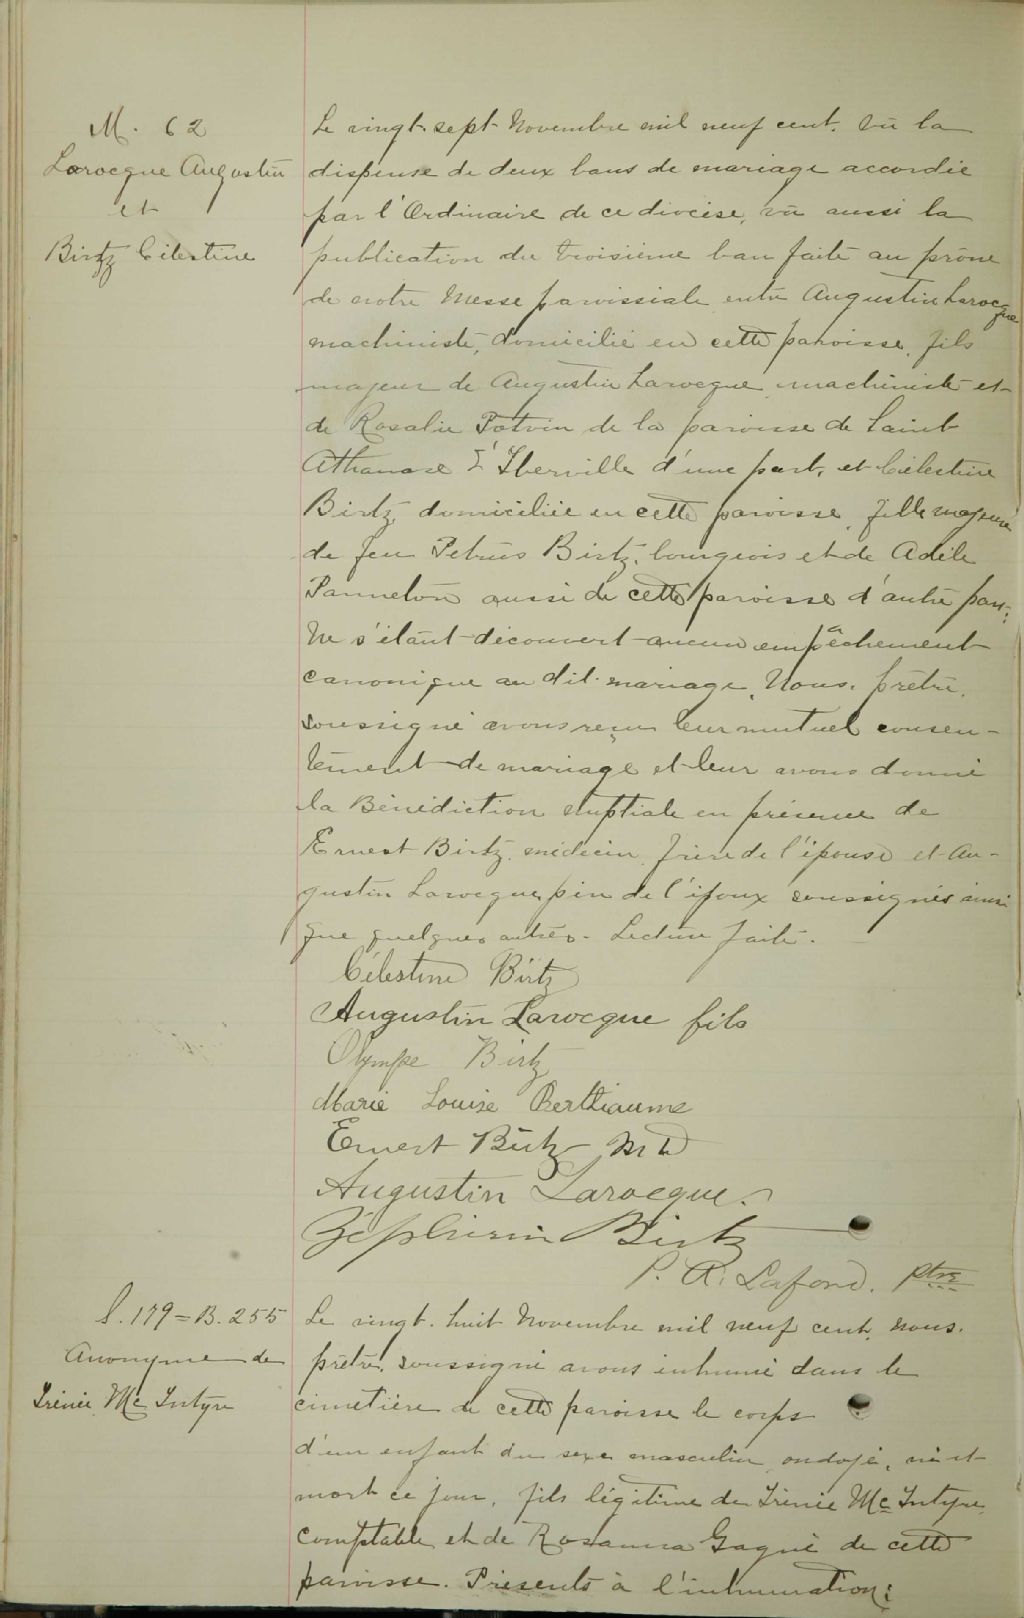 M. 62
Larocque Augustin
et
Birtz Célestine
Le vingt-sept Novembre mil neuf cent. vu la
dispense de deux bans de mariage accordée
par l'Ordinaire de ce diocèse, vu aussi la
publication du troisième ban faite au prône
de notre Messe paroissiale entre Augustin Larocque
machiniste, domicilié en cette paroisse, fils
majeur de Augustin Larocque machiniste et
de Rosalie Potvin de la paroisse de Saint
Athanase d'Iberville d'une part, et Célestine
Birtz, domiciliée en cette paroisse, fille majeure
de feu Petrus Birtz, bourgeois et de Adèle
Panneton aussi de cette paroisse d'autre part;
Ne s'étant découvert aucun empêchement
canonique au dit mariage, Nous, prêtre,
soussigné avons reçu leur mutuel consen-
tement de mariage et leur avons donné
la Bénédiction nuptiale en présence de
Ernest Birtz, médecin, frère de l'épouse et Au-
gustin Larocque, père de l'époux soussignés ainsi
que quelques autres. Lecture faite.
Célestine Birtz
Augustin Larocque fils
Olympe Birtz
Marie Louise Berthiaume
Ernest Birtz M D
Augustin Larocque.
Zéphirin Birtz
P. A. Lafond. ptre
S. 179 = B. 255
Anonyme de
Irénée Mc Intyre
Le vingt-huit Novembre mil neuf cent, nous,
prêtre, soussigné avons inhumé dans le
cimetière de cette paroisse le corps
d'un enfant du sexe masculin ondoyé, né et
mort ce jour, fils légitime de Irénée Mc Intyre,
comptable et de Rosanna Gagné de cette
paroisse. Présents à l'inhumation: